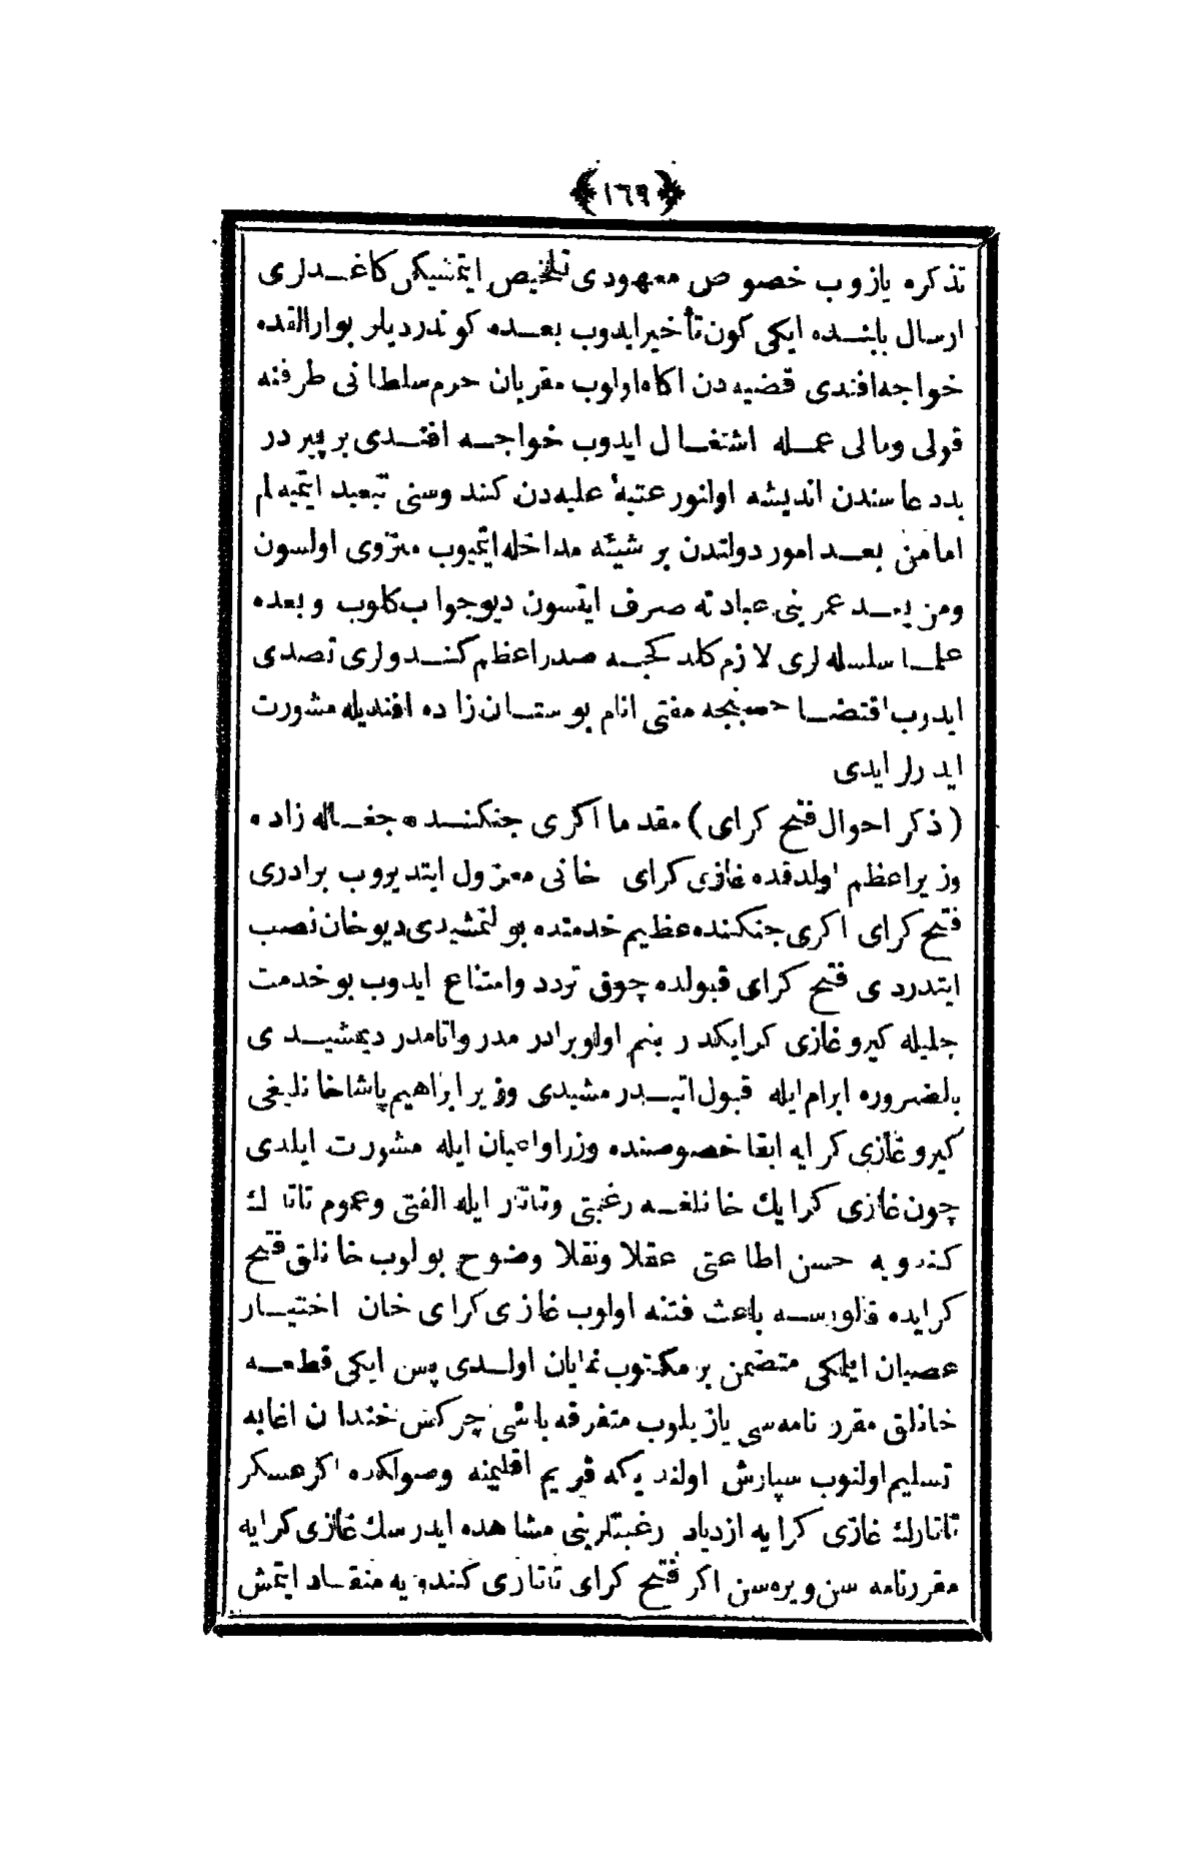 ﴿١٦٩﴾
تذكره يازوب خصوص معهودى تلخيص ايتمشيكن كاغدلرى
ارسال بابنده ايكى كون تأخير ايدوب بعده كوندرديلر بو ارالقده
خواجه افندى قضيه دن اكاه اولوب مقربان حرم سلطانى طرفنه
قولى ومالى عمله اشتغال ايدوب خواجه افندى بر پير در
بد دعاسندن انديشه اولنور عتبهٔ عليه دن كندوسنى تبعيد ايتميه لم
اما من بعد امور دولتدن بر شيئه مداخله ايتميوب منزوى اولسون
ومن بعد عمرينى عبادته صرف ايتسون ديو جواب كلوب وبعده
علما سلسله لرى لازم كلدكجه صدر اعظم كندولرى تصدى
ايدوب اقتضا حسبنجه مفتى انام بوستان زاده افنديله مشورت
ايدرلر ايدى
(ذكر احوال فتح كراى) مقدما اكرى جنكنده جغاله زاده
وزير اعظم اولدقده غازى كراى خانى معزول ايتديروب برادرى
فتح كراى اكرى جنكنده عظيم خدمتده بولنمشيدى ديو خان نصب
ايتدردى فتح كراى قبولده چوق تردد وامتناع ايدوب بو خدمت
جليله كيرو غازى كرايكدر بنم اولو برادرمدر واتامدر ديمشيدى
بالضروره ابرام ايله قبول اتيدرمشيدى وزير ابراهيم پاشا خانليغى
كيرو غازى كرايه ابقا خصوصنده وزرا واعيان ايله مشورت ايلدى
چون غازى كرايك خانلغه رغبتى وتاتار ايله الفتى وعموم تاتارك
كندويه حسن اطاعتى عقلا ونقلا وضوح بولوب خانلق فتح
كرايده قالورسه باعث فتنه اولوب غازى كراى خان اختيار
عصيان ايلمكى متضمن بر مكتوب نمايان اولدى پس ايكى قطعه
خانلق مقرر نامه سى يازيلوب متفرقه باشى چركس خندان اغايه
تسليم اولنوب سپارش اولنديكه قريم اقليمنه وصولكده اكر عسكر
تاتارك غازى كرايه ازدياد رغبتلرينى مشاهده ايدرسك غازى كرايه
مقرر نامه سن ويره سن اكر فتح كراى تاتارى كندويه منقاد ايتمش